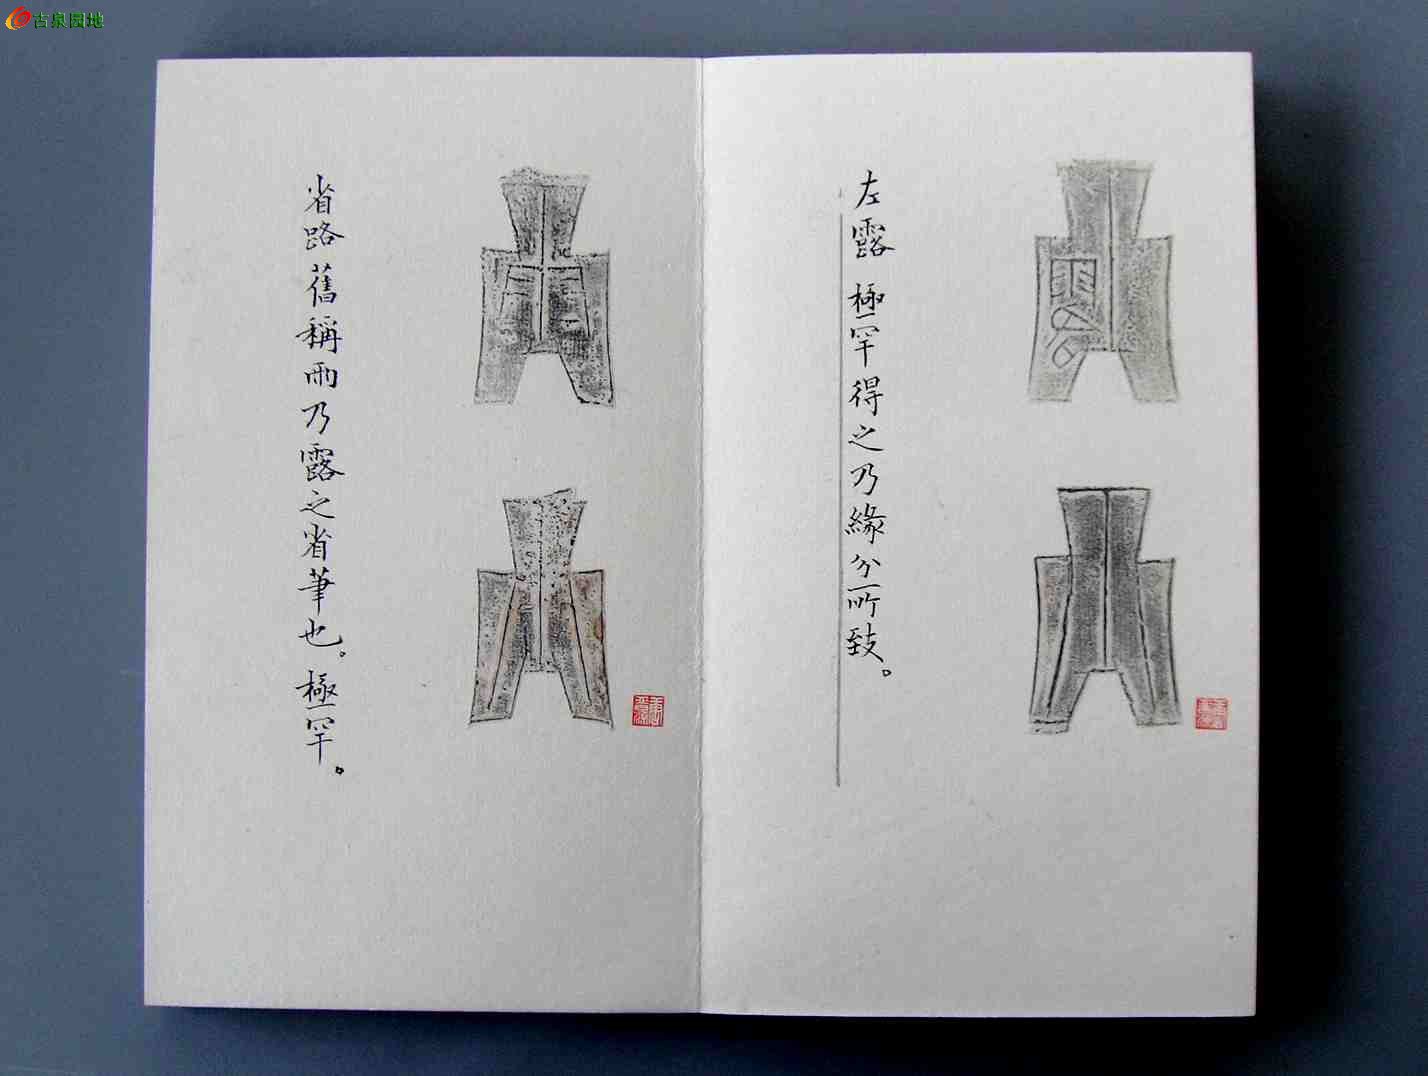 古泉园地
左露 極罕得之乃緣分所致。
省路 舊稱雨乃露之省筆也。極罕。